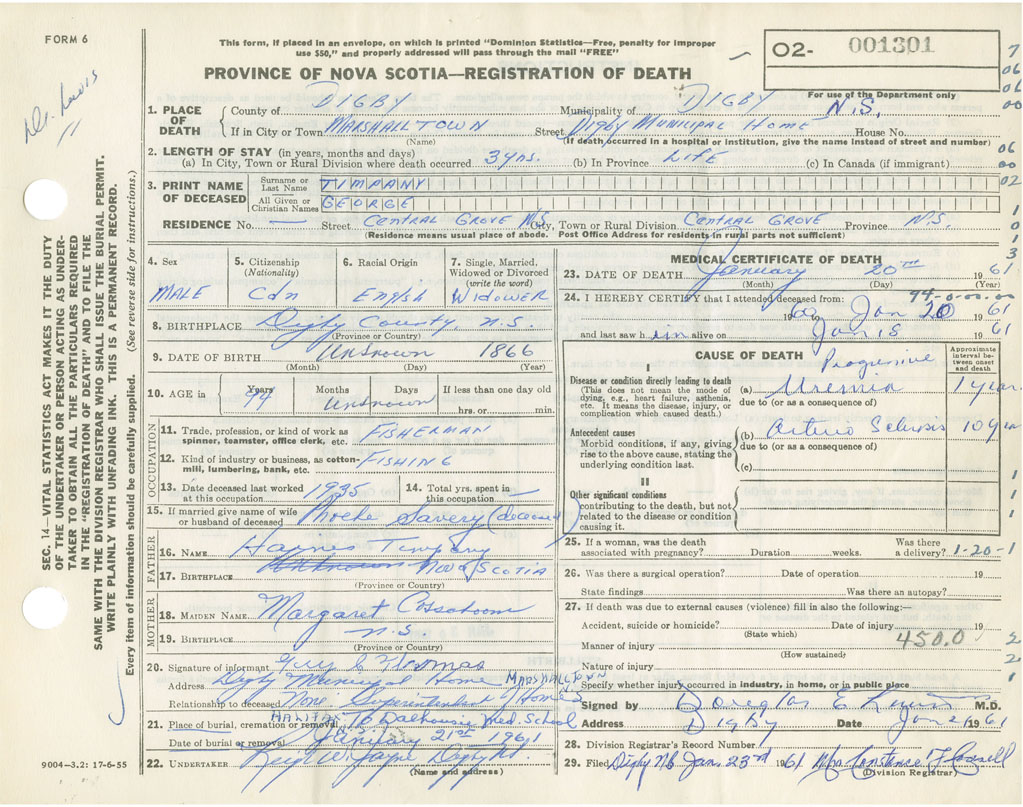 FORM 6
This form, if placed in an envelope, on which is printed "Dominion Statistics—Free, penalty for improper
use $50," and properly addressed will pass through the mail "FREE"
PROVINCE OF NOVA SCOTIA—REGISTRATION OF DEATH
02- 001301
For use of the Department only
Dr. Lewis
SEC. 14—VITAL STATISTICS ACT MAKES IT THE DUTY
OF THE UNDERTAKER OR PERSON ACTING AS UNDER-
TAKER TO OBTAIN ALL THE PARTICULARS REQUIRED
IN THE "REGISTRATION OF DEATH" AND TO FILE THE
SAME WITH THE DIVISION REGISTRAR WHO SHALL ISSUE THE BURIAL PERMIT.
WRITE PLAINLY WITH UNFADING INK. THIS IS A PERMANENT RECORD.
Every item of information should be carefully supplied. (See reverse side for instructions.)
1. PLACE OF DEATH
County of DIGBY Municipality of DIGBY N.S.
If in City or Town MARSHALLTOWN Street Digby MUNICIPAL HOME House No.
(Name) (If death occurred in a hospital or institution, give the name instead of street and number)
2. LENGTH OF STAY (in years, months and days)
(a) In City, Town or Rural Division where death occurred 3 yrs. (b) In Province LIFE (c) In Canada (if immigrant)
3. PRINT NAME OF DECEASED
Surname or Last Name TIMPANY
All Given or Christian Names GEORGE
RESIDENCE No. — Street CENTRAL GROVE N.S. City, Town or Rural Division CENTRAL GROVE Province N.S.
(Residence means usual place of abode. Post Office Address for residents in rural parts not sufficient)
4. Sex MALE
5. Citizenship (Nationality) Cdn
6. Racial Origin English
7. Single, Married, Widowed or Divorced (write the word) WIDOWER
8. BIRTHPLACE Digby County, N.S.
(Province or Country)
9. DATE OF BIRTH Unknown 1866
(Month) (Day) (Year)
10. AGE in Years 94 Months Days Unknown If less than one day old
hrs. or min.
OCCUPATION
11. Trade, profession, or kind of work as spinner, teamster, office clerk, etc. FISHERMAN
12. Kind of industry or business, as cotton-mill, lumbering, bank, etc. FISHING
13. Date deceased last worked at this occupation 1935
14. Total yrs. spent in this occupation —
15. If married give name of wife or husband of deceased Phoebe Savery (deceased)
FATHER
16. NAME Haynes Timpany
17. BIRTHPLACE Unknown NOVA SCOTIA
(Province or Country)
MOTHER
18. MAIDEN NAME Margaret Cossaboom
19. BIRTHPLACE N.S.
(Province or Country)
20. Signature of informant Thomas
Address Digby Municipal Home MARSHALLTOWN N.S.
Relationship to deceased None Superintendent of Home
21. Place of burial, cremation or removal HALIFAX To Dalhousie Med. School
Date of burial or removal January 21st 1961
22. UNDERTAKER W. Jayne Digby N.S.
(Name and address)
9004—3.2: 17-6-55
MEDICAL CERTIFICATE OF DEATH
23. DATE OF DEATH January 20th 1961
(Month) (Day) (Year)
94-0-00.00
24. I HEREBY CERTIFY that I attended deceased from:
19 to Jan 20 1961
and last saw him alive on Jan 18 1961
CAUSE OF DEATH
Approximate interval between onset and death
I
Disease or condition directly leading to death
(This does not mean the mode of dying, e.g., heart failure, asthenia, etc. It means the disease, injury, or complication which caused death.)
(a) Progressive Uremia 1 year
due to (or as a consequence of)
Antecedent causes
Morbid conditions, if any, giving rise to the above cause, stating the underlying condition last.
(b) Arterio Sclerosis 10 years
due to (or as a consequence of)
(c)
II
Other significant conditions
contributing to the death, but not related to the disease or condition causing it.
25. If a woman, was the death associated with pregnancy? Duration weeks. Was there a delivery? 1-20-1
26. Was there a surgical operation? Date of operation 19
State findings Was there an autopsy?
27. If death was due to external causes (violence) fill in also the following:—
Accident, suicide or homicide? Date of injury 19
(State which)
Manner of injury 450.0
(How sustained)
Nature of injury
Specify whether injury occurred in industry, in home, or in public place
Signed by Douglas E Lewis M.D.
Address Digby Date Jan 21 1961
28. Division Registrar's Record Number
29. Filed Digby NS Jan. 23rd 1961 Mrs Constance
(Division Registrar)